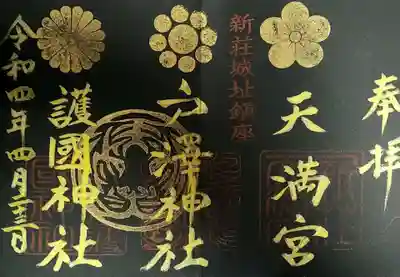 奉拝
天満宮
新荘城址鎮座
戸澤神社
護國神社
令和四年四月二十三日